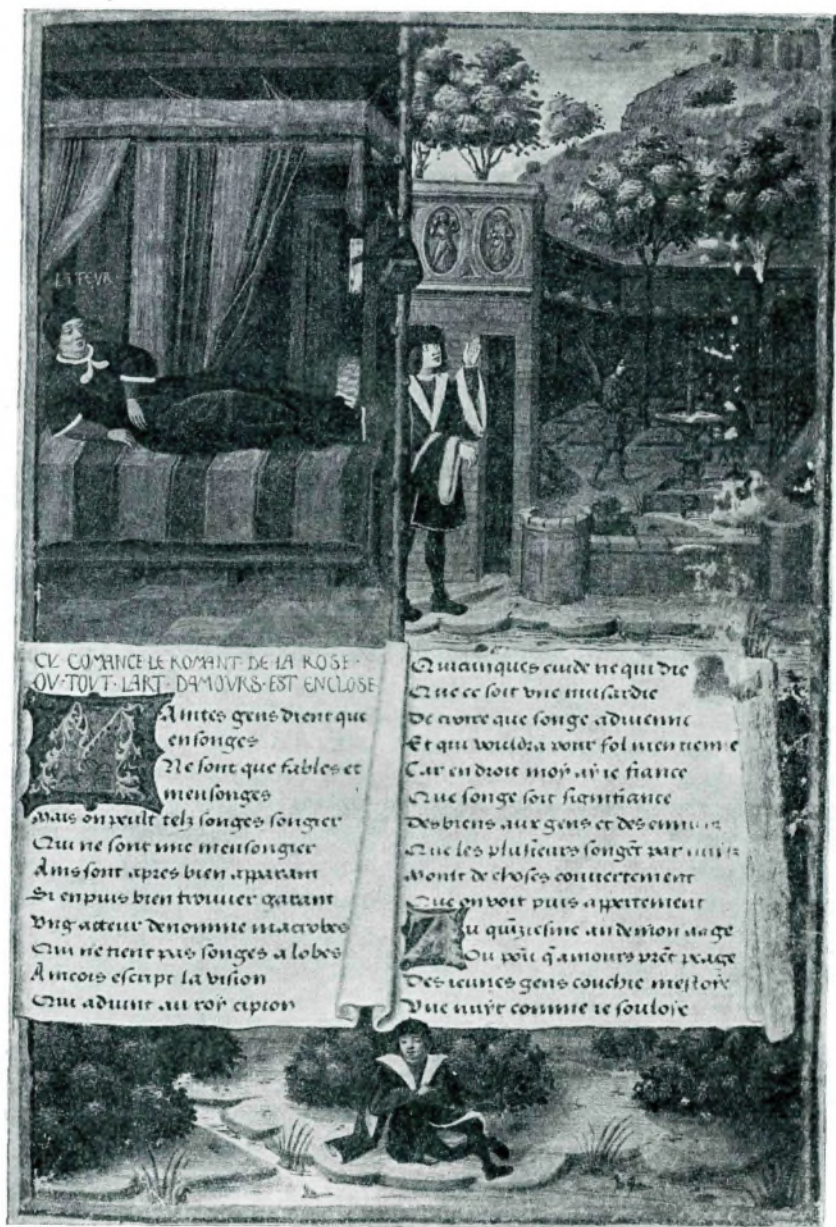 LATEVR
CY COMANCE LE ROMANT DE LA ROSE
OV TOVT LART DAMOVRS EST ENCLOSE
Maintes gens dient que
en songes
Ne sont que fables et
mensonges
Mais on peult telz songes songier
Qui ne sont mie mensongier
Ains sont apres bien apparant
Si en puis bien trouuer garant
Vng acteur denomme macrobes
Qui ne tient pas songes a lobes
Aincois escript la vision
Qui aduint au roy cipion
Quicunques cuide ne qui die
Que ce soit vne musardie
De croire que songe aduienne
Et qui vouldra pour fol men tienne
Car en droit moy ay ie fiance
Que songe soit signifiance
Des biens aux gens et des ennuiz
Que les plusieurs songet par nuitz
Moult de choses couuertement
Que on voit puis appertement
Au quiziesme an de mon aage
Ou point q amours pret peage
Des ieunes gens couchie mestoye
Vne nuyt comme ie souloye